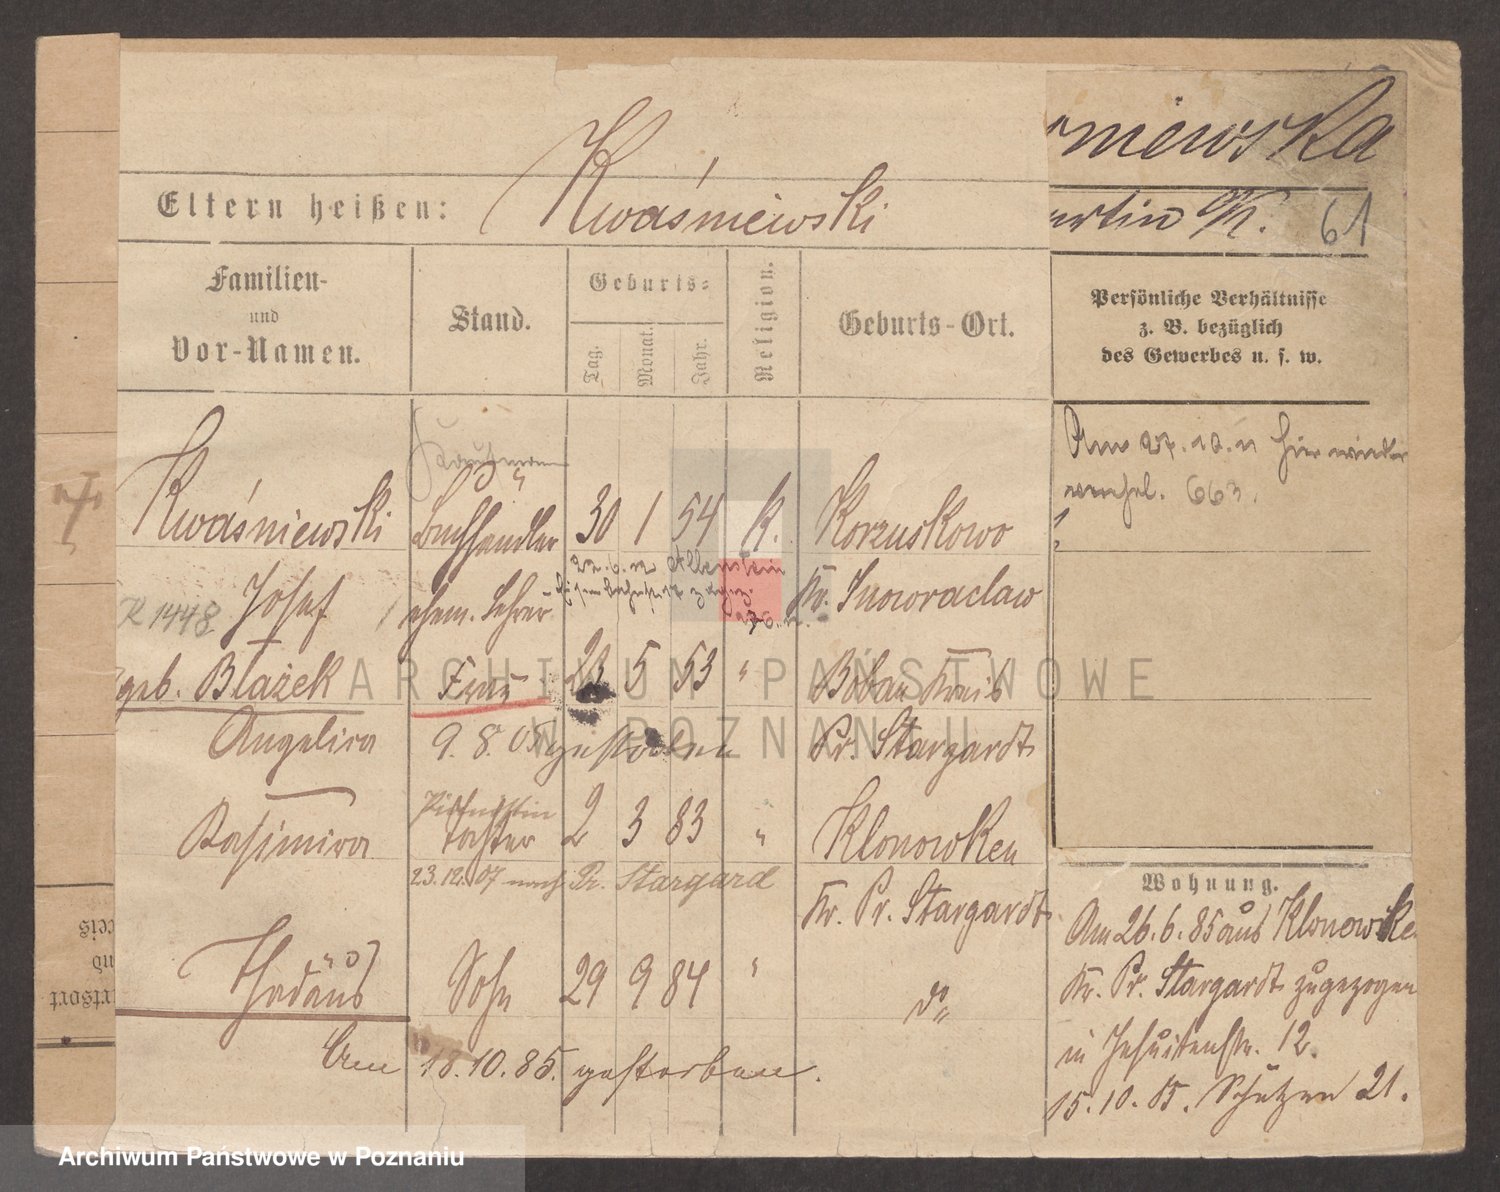 niewska
Kwaśniewski
Eltern heißen:
rtin K. 61
Familien-
und
Vor-Namen.
Stand.
Geburts-
Tag.
Monat.
Jahr.
Religion.
Geburts-Ort.
Persönliche Verhältnisse
z. B. bezüglich
des Gewerbes u. s. w.
Am 27. 10. 11 hier wieder
663.
Kaufmann
Kwaśniewski Buchhändler 30 1 54 k. Korzuskowo
22. 6. 12 Allenstein
K 1448 Josef ehem. Lehrer Kr. Inowraclaw
geb. Błażek Frau 23 5 53 " Bobau Kreis
Angelica 9. 8. 05 gestorben Pr. Stargardt
Kasimira Tochter 2 3 83 " Klonowken
23. 12. 07 nach Pr. Stargard
Kr. Pr. Stargardt
Thadäus Sohn 29 9 84 " do
Am 18. 10. 85. gestorben.
Wohnung.
Am 26. 6. 85 aus Klonowke
Kr. Pr. Stargardt zugezogen
in Jesuitenstr. 12.
15. 10. 85. Schützen 21.
ARCHIWUM PAŃSTWOWE
W POZNANIU
Archiwum Państwowe w Poznaniu